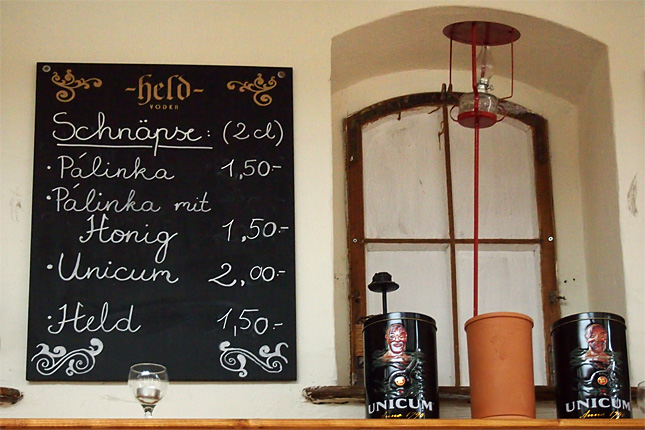 -held-
VODKA
Schnäpse: (2 cl)
· Pálinka 1,50-
· Pálinka mit
Honig 1,50.-
· Unicum 2,00.-
· Held 1,50-
UNICUM
UNICUM